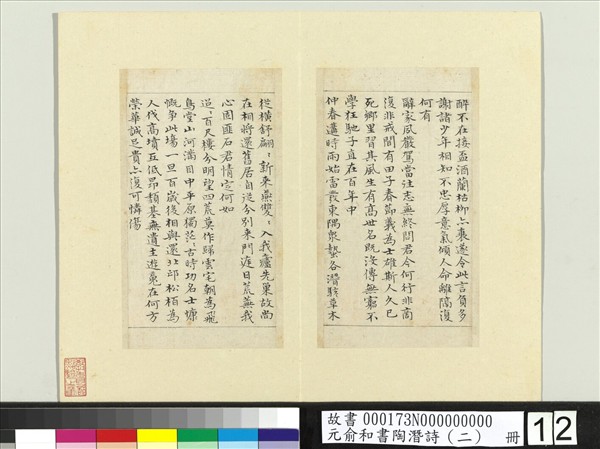 醉不在接盃酒蘭枯柳亦衰遂令此言負多
謝諸少年相知不忠厚意氣傾人命離隔復
何有
辭家夙嚴駕當往志無終問君今何行非商
復非戎聞有田子春節義為士雄斯人久已
死鄉里習其風生有高世名既沒傳無窮不
學狂馳子直在百年中
仲春遘時雨始雷發東隅衆蟄各潛駭草木
從橫舒翩〻新來燕雙〻入我廬先巢故尚
在相將還舊居自從分別來門庭日荒蕪我
心固匪石君情定何如
迢〻百尺樓分明望四荒莫作歸雲宅朝為飛
鳥堂山河滿目中平原獨茫〻古時功名士慷
慨爭此場一旦百歲後相與還北邙松栢為
人伐高墳互低昂頹基無遺主遊魂在何方
榮華誠足貴亦復可憐傷
故書 000173N000000000
元俞和書陶潛詩(二) 冊 12